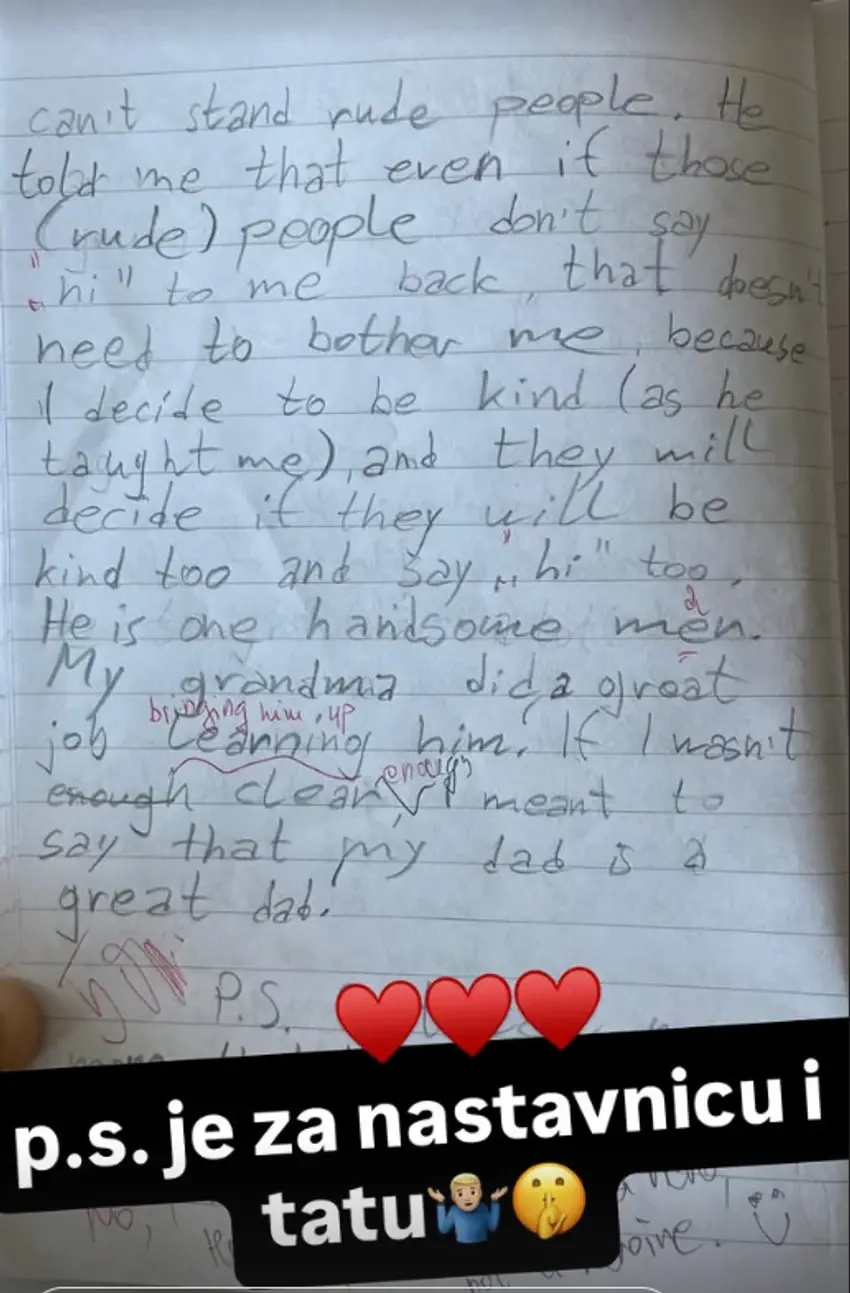 can't stand rude people. He
told me that even if those
(rude) people don't say
"
„hi" to me back, that doesn't
need to bother me, because
I decide to be kind (as he
taught me), and they will
decide if they will be
kind too and say „hi" too.
a
He is one handsome men.
My grandma did a great
bringing him up
job learning him. If I wasn't
enough
enough clear, I meant to
say that my dad is a
great dad.
P.S.
p.s. je za nastavnicu i
tatu🤷🏼‍♂️🤫
No,